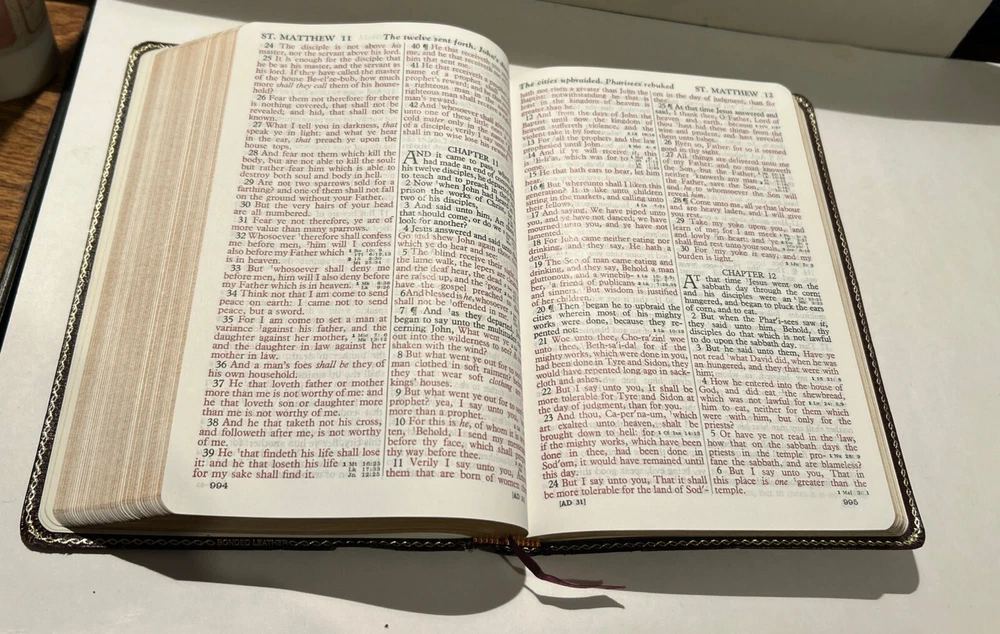 ST. MATTHEW 11
The twelve sent forth. John's
24 The disciple is not above his
master, nor the servant above his lord.
25 It is enough for the disciple that
he be as his master, and the servant as
his lord. If they have called the master
of the house Be-el'ze-bub, how much
more shall they call them of his house-
hold?
26 Fear them not therefore: for there
is nothing covered, that shall not be
revealed; and hid, that shall not be
known.
27 What I tell you in darkness, that
speak ye in light: and what ye hear
in the ear, that preach ye upon the
house tops.
28 And fear not them which kill the
body, but are not able to kill the soul:
but rather fear him which is able to
destroy both soul and body in hell.
29 Are not two sparrows sold for a
farthing? and one of them shall not fall
on the ground without your Father.
30 But the very hairs of your head
are all numbered.
31 Fear ye not therefore, ye are of
more value than many sparrows.
32 Whosoever therefore shall confess
me before men, him will I confess
also before my Father which
is in heaven.
33 But whosoever shall deny me
before men, him will I also deny before
my Father which is in heaven.
34 Think not that I am come to send
peace on earth: I came not to send
peace, but a sword.
35 For I am come to set a man at
variance against his father, and the
daughter against her mother,
and the daughter in law against her
mother in law.
36 And a man's foes shall be they of
his own household.
37 He that loveth father or mother
more than me is not worthy of me: and
he that loveth son or daughter more
than me is not worthy of me.
38 And he that taketh not his cross,
and followeth after me, is not worthy
of me.
39 He that findeth his life shall lose
it: and he that loseth his life
for my sake shall find it.
994
40 ¶ He that
me, and he that
him that sent me.
41 He that receiveth a
name of a prophet
prophet's reward; and
a righteous man in
righteous man shall
man's reward.
42 And whosoever shall
unto one of these
cold water only in the
of a disciple, verily I
shall in no wise lose his
CHAPTER 11
AND it came to pass, when
had made an end of
his twelve disciples, he departed
to teach and to preach in
2 Now when John had
prison the works of
two of his disciples,
3 And said unto him, Art
that should come, or do we
look for another?
4 Jesus answered and said
Go and shew John again
which ye do hear and see:
5 The blind receive their
the lame walk, the lepers are
and the deaf hear, the dead
are raised up, and the poor
have the gospel preached
6 And blessed is he, whosoever
shall not be offended in me.
7 ¶ And as they departed,
began to say unto the multitudes
cerning John, What went ye
out into the wilderness to
shaken with the wind?
8 But what went ye out for
man clothed in soft raiment?
they that wear soft clothing
kings' houses.
9 But what went ye out for to
prophet? yea, I say unto you,
more than a prophet.
10 For this is he, of whom it is
ten, Behold, I send my
before thy face, which shall
thy way before thee.
11 Verily I say unto you,
them that are born of women
The cities upbraided. Pharisees rebuked
ST. MATTHEW 12
hath not risen a greater than John the
Baptist: notwithstanding he that is
least in the kingdom of heaven is
greater than he.
12 And from the days of John the
Baptist until now the kingdom of
heaven suffereth violence, and the
violent take it by force.
13 For all the prophets and the law
prophesied until John.
14 And if ye will receive it, this
is E-li'as, which was for to
come.
15 He that hath ears to hear, let him
hear.
16 ¶ But whereunto shall I liken this
generation? It is like unto children
sitting in the markets, and calling unto
their fellows,
17 And saying, We have piped unto
you, and ye have not danced; we have
mourned unto you, and ye have not
lamented.
18 For John came neither eating nor
drinking, and they say, He hath a
devil.
19 The Son of man came eating and
drinking, and they say, Behold a man
gluttonous, and a winebib-
ber, a friend of publicans
and sinners. But wisdom is justified
of her children.
20 ¶ Then began he to upbraid the
cities wherein most of his mighty
works were done, because they re-
pented not:
21 Woe unto thee, Cho-ra'zin! woe
unto thee, Beth-sa'i-da! for if the
mighty works, which were done in you,
had been done in Tyre and Sidon, they
would have repented long ago in sack-
cloth and ashes.
22 But I say unto you, It shall be
more tolerable for Tyre and Sidon at
the day of judgment, than for you.
23 And thou, Ca-per'na-um, which
art exalted unto heaven, shalt be
brought down to hell: for
if the mighty works, which have been
done in thee, had been done in
Sod'om, it would have remained until
this day.
24 But I say unto you, That it shall
be more tolerable for the land of Sod'-
[AD 31]
om in the day of judgment, than for
thee.
25 ¶ At that time Jesus answered and
said, I thank thee, O Father, Lord of
heaven and earth, because
thou hast hid these things from the
wise and prudent, and hast revealed
them unto babes.
26 Even so, Father: for so it seemed
good in thy sight.
27 All things are delivered unto me
of my Father: and no man knoweth
the Son, but the Father,
neither knoweth any man
the Father, save the Son,
and he to whomsoever the Son will
reveal him.
28 ¶ Come unto me, all ye that labour
and are heavy laden, and I will give
you rest.
29 Take my yoke upon you, and
learn of me; for I am meek
and lowly in heart: and ye
shall find rest unto your souls.
30 For my yoke is easy, and my
burden is light.
CHAPTER 12
AT that time Jesus went on the
sabbath day through the corn;
and his disciples were an
hungred, and began to pluck the ears
of corn, and to eat.
2 But when the Phar'i-sees saw it,
they said unto him, Behold, thy
disciples do that which is not lawful
to do upon the sabbath day.
3 But he said unto them, Have ye
not read what David did, when he was
an hungred, and they that were with
him;
4 How he entered into the house of
God, and did eat the shewbread,
which was not lawful for
him to eat, neither for them which
were with him, but only for the
priests?
5 Or have ye not read in the law,
how that on the sabbath days the
priests in the temple pro-
fane the sabbath, and are blameless?
6 But I say unto you, That in
this place is one greater than the
temple.
995
BONDED LEATHER